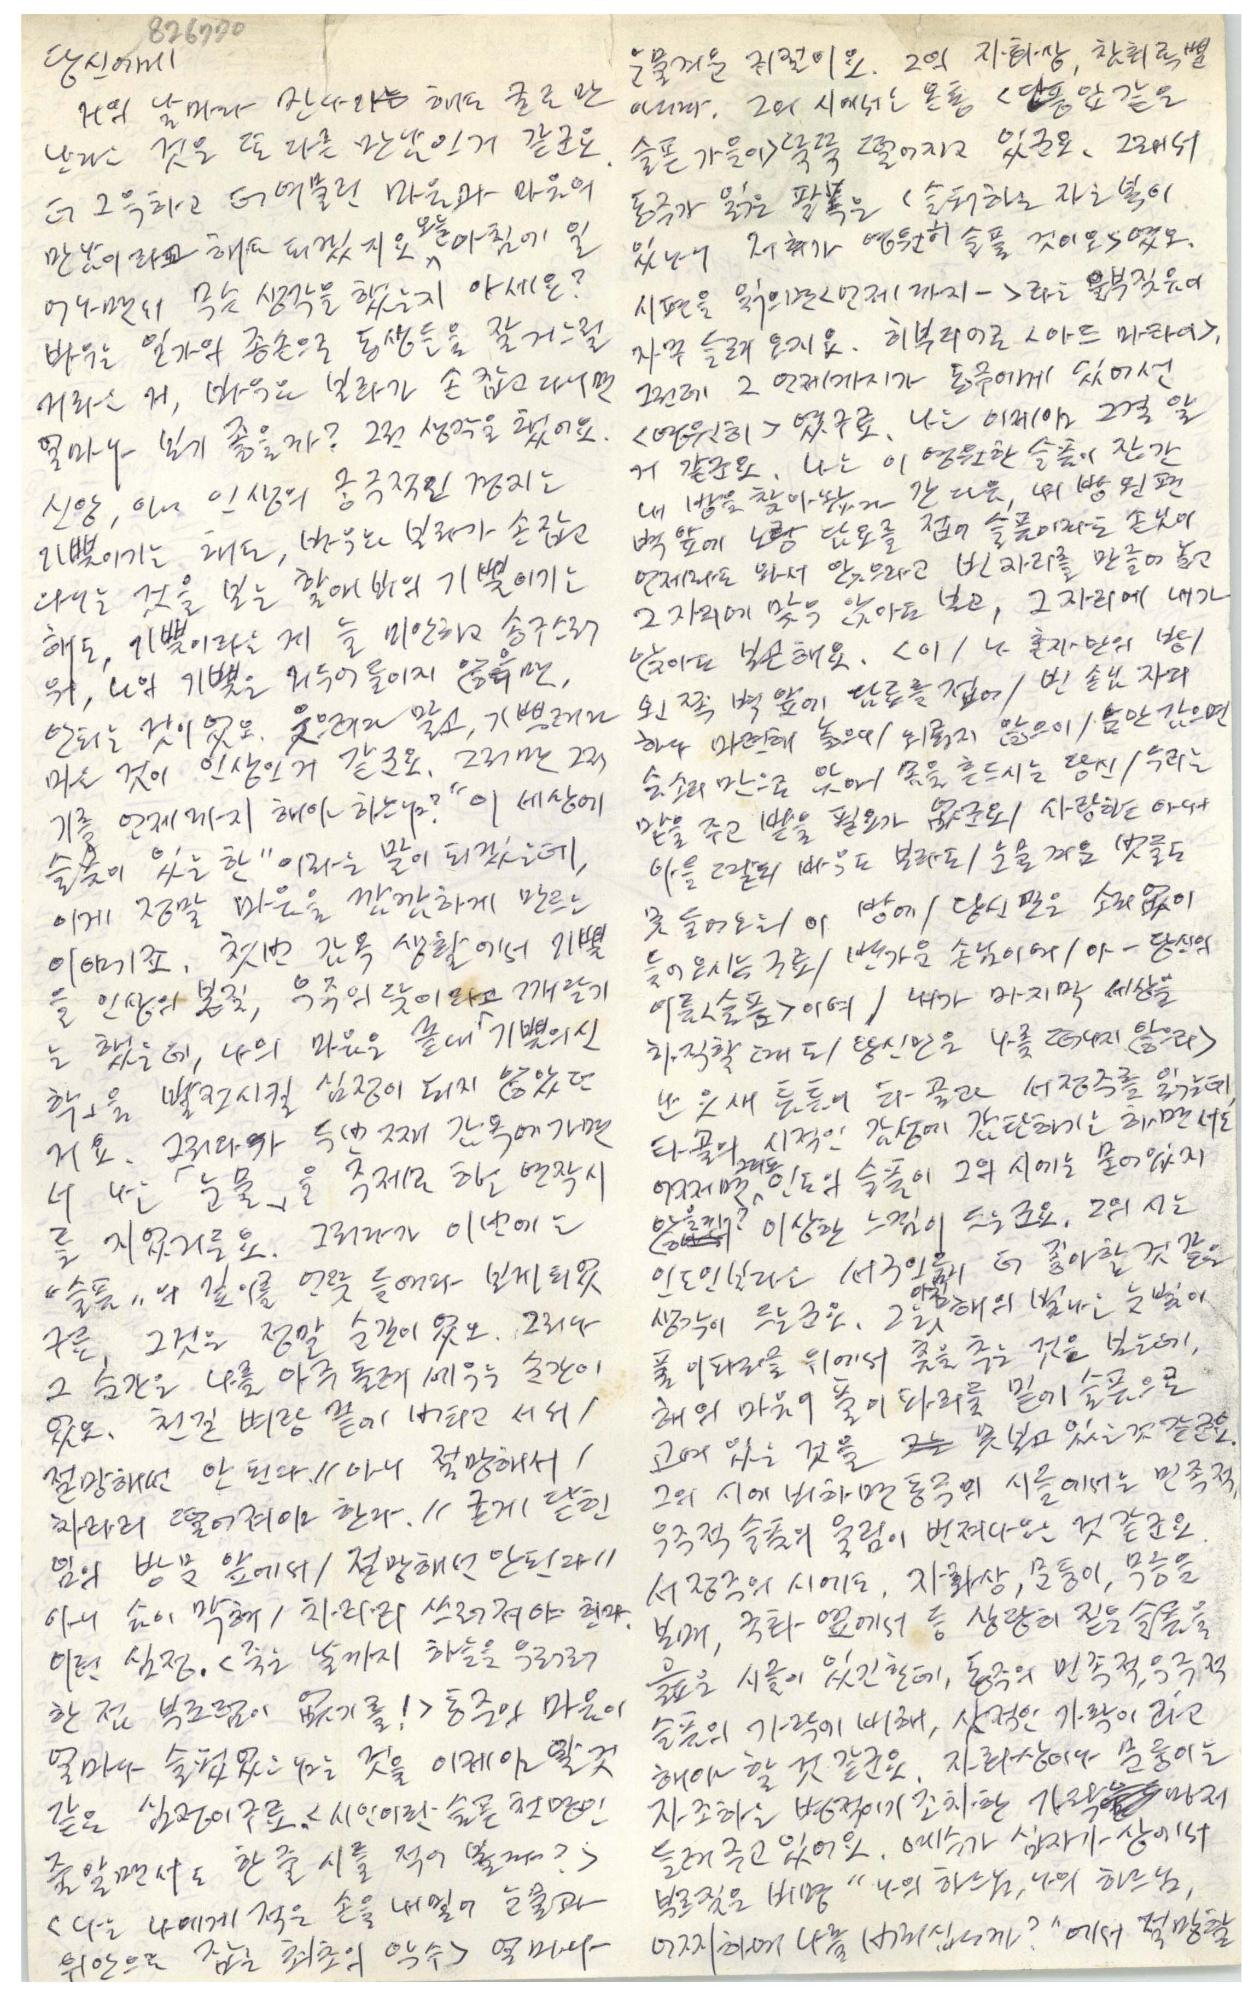 826770
당신에게
거의 날마다 만나라는 해도 글로 만
난다는 것은 또 다른 만남인거 같군요.
더 그윽하고 더 여물린 마음과 마음의
만남이라고 해도 되겠지요. 오늘 아침에 일
어나면서 무슨 생각을 했는지 아세요?
바우는 일가의 종손으로 동생들을 잘 거느릴
거라는 거, 바우와 보라가 손 잡고 다니면
얼마나 보기 좋을까? 그런 생각을 했어요.
신앙, 아니 인생의 궁극적인 경지는
기쁨이기는 해도, 바우와 보라가 손잡고
다니는 것을 보는 할애비의 기쁨이기는
해도, 기쁨이라는 게 늘 미안하고 송구스러
워, 나의 기쁨을 거두어들이지 않으면,
안되는 것이었오. 웃으려다 말고, 기쁘려다
마는 것이 인생인거 같군요. 그러면 그러
기를 언제까지 해야 하느냐? "이 세상에
슬픔이 있는 한" 이라는 말이 되겠는데,
이게 정말 마음을 깜깜하게 만드는
이야기죠. 첫번 감옥 생활에서 기쁨
을 인생의 본질, 우주의 닻이라고 깨닫기
는 했는데, 나의 마음은 끝내 「기쁨의 신
학」을 발전시킬 심정이 되지 않았던
거요. 그러다가 두번째 감옥에 가면
서 나는 「눈물」을 주제로 하는 연작시
를 지었거든요. 그러다가 이번에는
"슬픔"의 깊이를 언뜻 들여다 보게 되었
구료. 그것은 정말 순간이었오. 그러나
그 순간은 나를 아주 돌려 세우는 순간이
었오. 천길 벼랑 끝에 버티고 서서/
절망해선 안 된다.// 아니 절망해서/
차라리 떨어져야 한다.// 굳게 닫힌
임의 방문 앞에서/ 절망해선 안된다//
아니 숨이 막혀/ 차라리 쓰러져야 한다.
이런 심정. <죽는 날까지 하늘을 우러러
한 점 부끄럼이 없기를!> 동주의 마음이
얼마나 슬펐었느냐는 것을 이제야 알 것
같은 심정이구료. <시인이란 슬픈 천명인
줄 알면서도 한 줄 시를 적어 볼까?>
<나는 나에게 적은 손을 내밀어 눈물과
위안으로 잡는 최초의 악수> 얼마나
눈물겨운 귀절이오. 그의 자화상, 참회록 별
이니까. 그의 시에서는 온통 <단풍잎 같은
슬픈 가을이> 뚝뚝 떨어지고 있군요. 그래서
동주가 읽은 팔복은 <슬퍼하는 자는 복이
있나니 저희가 영원히 슬플 것이오>였오.
시편을 읽으면 <언제까지-> 라는 울부짖음이
자꾸 들려 오지요. 히부리어로 <아드 마타이>.
그런데 그 언제까지가 동주에게 있어선
<영원히> 였구료. 나는 이제야 그걸 알
거 같군요. 나는 이 영원한 슬픔이 잠깐
내 방을 찾아왔다 간 다음, 내 방 왼편
벽 앞에 노랑 담요를 접어 슬픔이라는 손님이
언제라도 와서 앉으라고 빈 자리를 만들어 놓고
그 자리에 맞우 앉아도 보고, 그 자리에 내가
앉아도 보곤 해요. <이/ 나 혼자만의 방/
왼 쪽 벽 앞에 담요를 접어/ 빈 손님 자리
하나 마련해 놓으니/ 외롭지 않으이/ 눈만 감으면
숨소리 만으로 와서/ 몸을 흔드시는 당신/ 우리는
말을 주고 받을 필요가 없군요/ 사랑하는 아내
아들 딸도 바우도 보라도/ 눈물 겨운 벗들도
못 들어오는/ 이 방에/ 당신 만은 소리없이
들어오시는구료/ 반가운 손님이여/ 아- 당신의
이름 <슬픔>이여/ 내가 마지막 세상을
하직할 때도/ 당신만은 나를 떠나지 않으리>
난 요새 틈틈이 타골과 서정주를 읽는데,
타골의 시적인 감성에 감탄하기는 하면서도
어쩌면 그리도 인도의 슬픔이 그의 시에는 묻어있지
않을까? 이상한 느낌이 드는군요. 그의 시는
인도인보다는 서구인들이 더 좋아할 것 같은
생각이 드는군요. 그는 아침 해의 빛나는 눈빛이
풀 이파리들 위에서 춤을 추는 것은 보는데,
해의 마음이 풀이파리들 밑에 슬픔으로
고여 있는 것을 못 보고 있는 것 같군요.
그의 시에 비하면 동주의 시들에서는 민족적,
우주적 슬픔의 울림이 번져나오는 것 같군요.
서정주의 시에도, 자화상, 문둥이, 목숨을
보며, 국화 옆에서 등 상당히 짙은 슬픔을
읊은 시들이 있긴 한데, 동주의 민족적, 우주적
슬픔의 가락에 비해, 사적인 가락이라고
해야 할 것 같군요. 자화상이나 문둥이는
자조하는 병적이기조차한 가락마저
들려 주고 있어요. 예수가 십자가 상에서
부르짖은 비명 "나의 하느님, 나의 하느님,
어찌하여 나를 버리십니까?" 에서 절망할